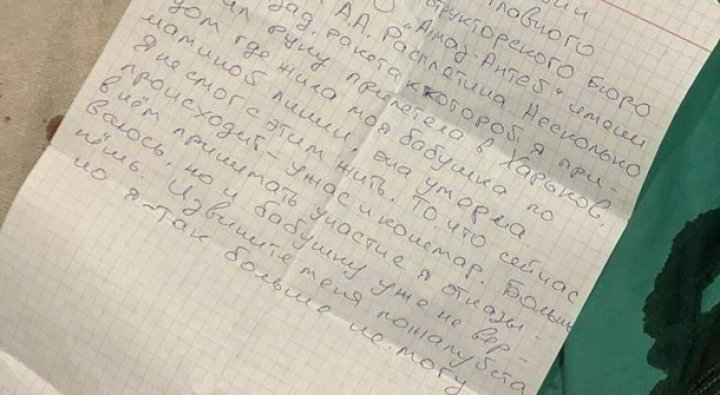 главного
структорского бюро
„Алмаз-Антей" имени
А.А. Расплетина. Несколько
зад, ракета к которой я при-
ил руку прилетела в Харьков,
дом где жила моя бабушка по
маминой линии, она умерла.
Я не смог с этим жить. То что сейчас
происходит - ужас и кошмар. Больше
в нём принимать участие я отказы-
ваюсь, но и бабушку уже не вер-
нёшь. Извините меня пожалуйста
но я - так больше не могу